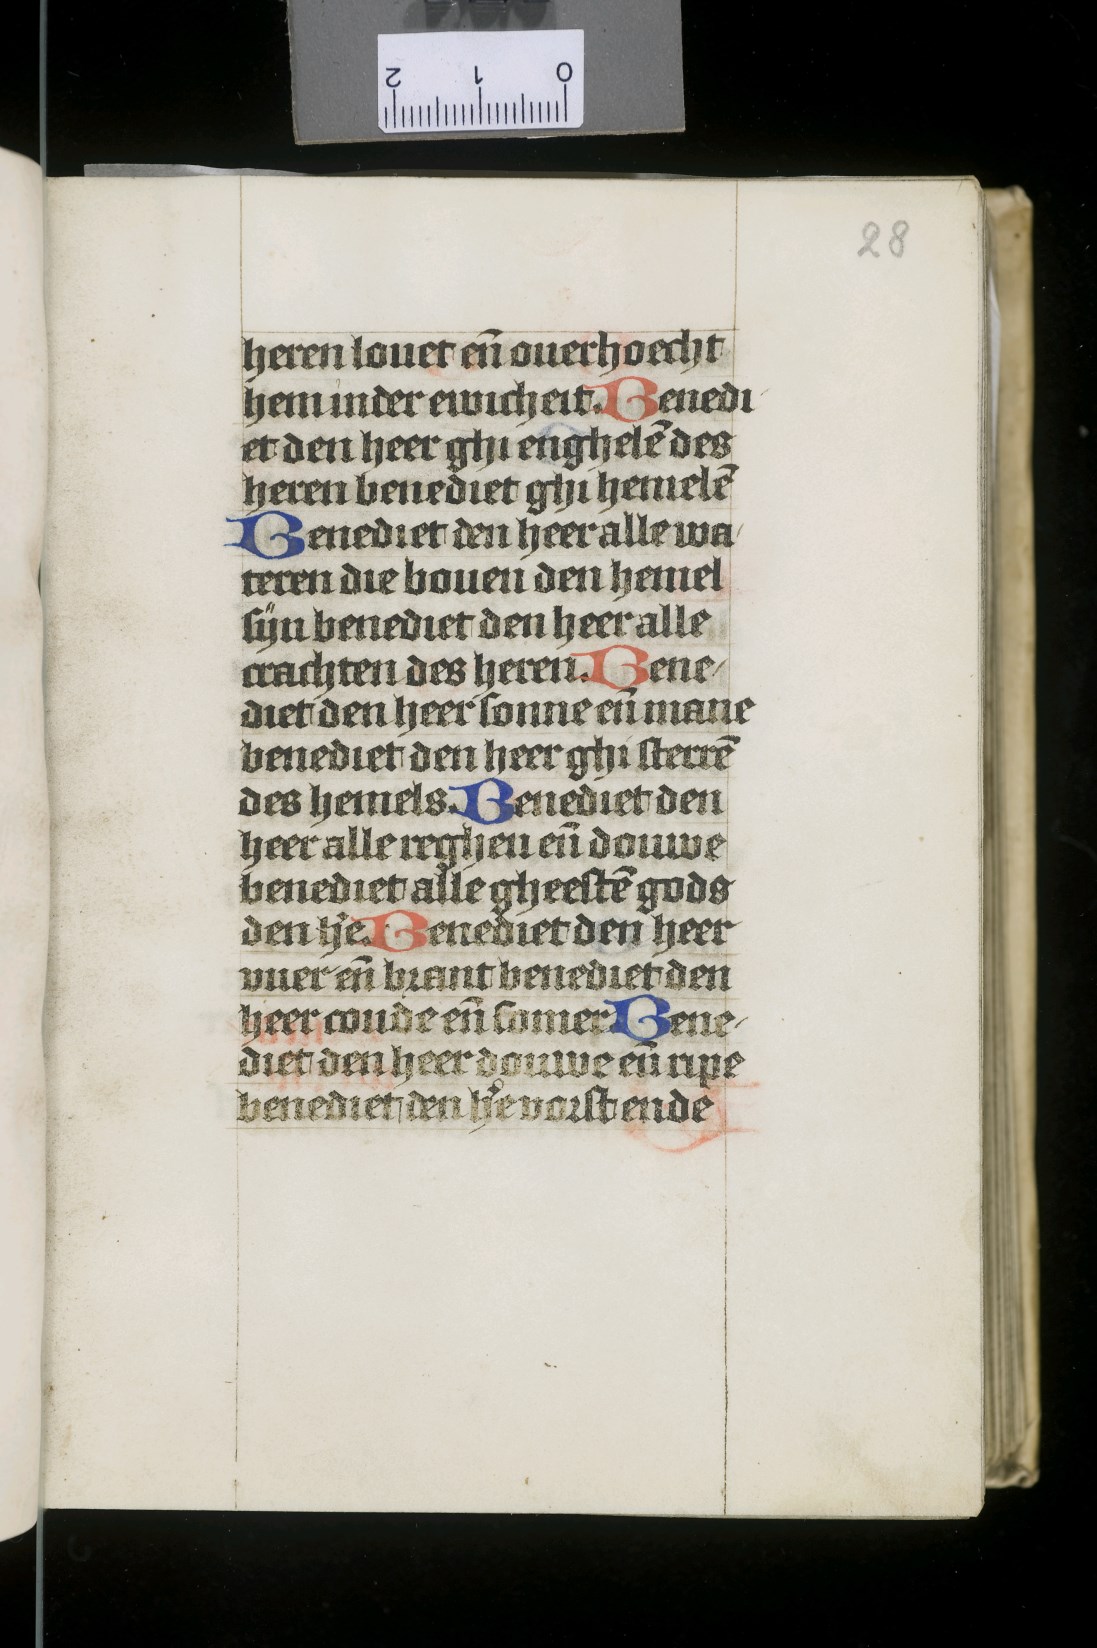 2 1 0
28
heren louet en̄ ouerhoecht
hem inder ewicheit. Benedi
et den heer ghi enghelē des
heren benediet ghi hemelē
Benediet den heer alle wa
teren die bouen den hemel
sÿn benediet den heer alle
crachten des heren. Bene
diet den heer sonne en̄ mane
benediet den heer ghi sterrē
des hemels. Benediet den
heer alle reghen en̄ douwe
benediet alle gheestē gods
den h'e. Benediet den heer
vuer en̄ brant benediet den
heer coude en̄ somer Bene
diet den heer douwe en̄ ripe
benediet den h'e vorst ende